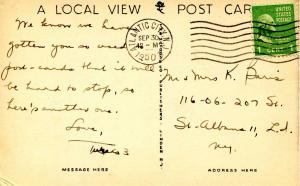 A LOCAL VIEW POST CAR
ATLANTIC CITY, N.J.
SEP 30
12 - M
1950
UNITED STATES
POSTAGE
1
We know we have
gotten you so used
post-cards that it will
be hard to stop, so
here's another one.
Love,
Mr + Mrs K.
116-06-207 St.
St. Albans 11, L.I.
N.Y.
MESSAGE HERE
ADDRESS HERE